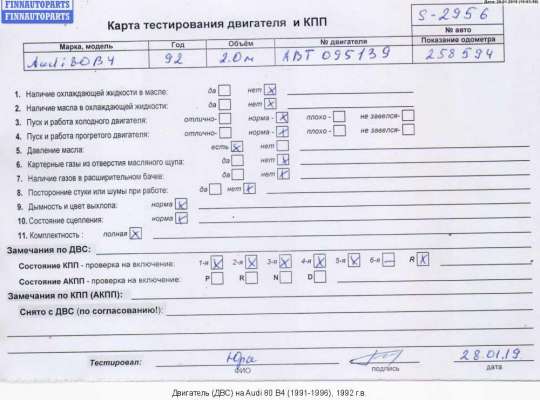 FINNAUTOPARTS
FINNAUTOPARTS
Карта тестирования двигателя и КПП
S-2956
№ авто
Марка, модель Год Объём № двигателя Показание одометра
Audi 80B4 92 2.0м ABT 095139 258594
1. Наличие охлаждающей жидкости в масле: да нет x
2. Наличие масла в охлаждающей жидкости: да нет x
3. Пуск и работа холодного двигателя: отлично- норма - x плохо - не завелся-
4. Пуск и работа прогретого двигателя: отлично- норма - x плохо - не завелся-
5. Давление масла: есть x нет
6. Картерные газы из отверстия масляного щупа: да нет x
7. Наличие газов в расширительном бачке: да нет x
8. Посторонние стуки или шумы при работе: да нет x
9. Дымность и цвет выхлопа: норма x
10. Состояние сцепления: норма x
11. Комплектность : полная x
Замечания по ДВС:
Состояние КПП - проверка на включение: 1-я x 2-я x 3-я x 4-я x 5-я x 6-я – R x
Состояние АКПП - проверка на включение: P R N D
Замечания по КПП (АКПП):
Снято с ДВС (по согласованию!):
Тестировал: Юра 28.01.19
ФИО подпись дата
Двигатель (ДВС) на Audi 80 B4 (1991-1996), 1992 г.в.